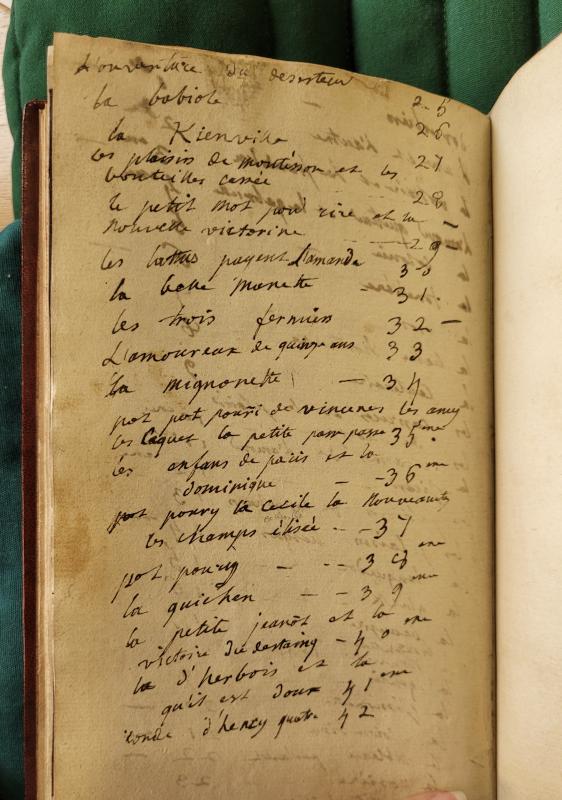 L'ouverture du deserteur
la babiole 25
la Kienville 26
les plaisirs de montisson et les 27
bouteilles cassée
le petit mot pour rire et la 28
nouvelle victorine
les battus payent L'amande 29
la belle manette 30
31
les trois fermiers 32
L'amoureux de quinze ans 33
la mignonette 34
pot pouri de vincenes les amus
les Caquet la petite passe passe 35 eme
les enfans de paris et la
dominique 36 eme
pot poury la cecile la nouveauté
les champs élisée 37
pot poury 38 eme
la guichen 39 eme
la petite jeanot et la
victoire du destaing 40 eme
la d'herbois et la
qu'il est doux 41 eme
ronde d'hency quatre 42